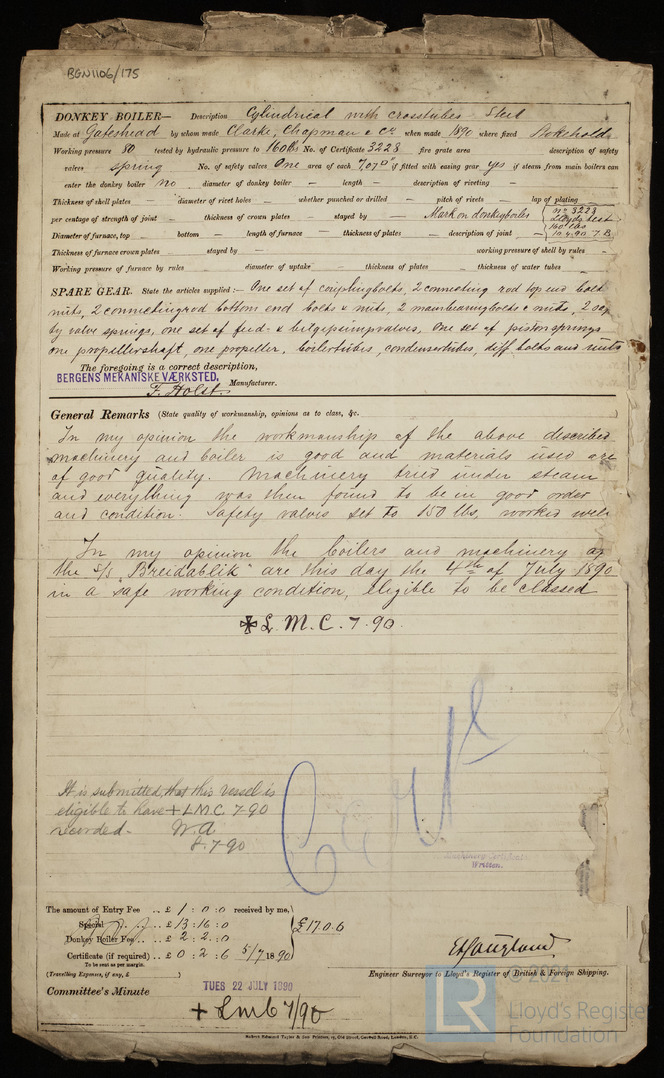 BGN1106/175
DONKEY BOILER— Description Cylindrical with crosstubes Steel
Made at Gateshead by whom made Clarke, Chapman & Co when made 1890 where fixed Stokehold
Working pressure 80 tested by hydraulic pressure to 160 lbs No. of Certificate 3228 fire grate area description of safety
valves spring No. of safety valves One area of each 7,07" if fitted with easing gear yes if steam from main boilers can
enter the donkey boiler no diameter of donkey boiler — length — description of riveting —
Thickness of shell plates — diameter of rivet holes — whether punched or drilled — pitch of rivets lap of plating
per centage of strength of joint — thickness of crown plates — stayed by — Mark on donkeyboiler No 3228
Lloyds test
160 lbs
10.4.90 T.B.
Diameter of furnace, top — bottom — length of furnace — thickness of plates — description of joint —
Thickness of furnace crown plates — stayed by — working pressure of shell by rules —
Working pressure of furnace by rules — diameter of uptake — thickness of plates — thickness of water tubes —
SPARE GEAR. State the articles supplied:— One set of couplingbolts, 2 connecting rod top end bolts
nuts, 2 connectingrod bottom end bolts & nuts, 2 mainbearingbolts & nuts, 2 safe
ty valve springs, one set of feed- & bilgepumpvalves, One set of pistonsprings
one propellershaft, one propeller, boilertubes, condensertubes, diff. bolts and nuts
The foregoing is a correct description,
BERGENS MEKANISKE VÆRKSTED,
F. Holst. Manufacturer.
General Remarks (State quality of workmanship, opinions as to class, &c.
In my opinion the workmanship of the above described
machinery and boiler is good and materials used are
of good quality. Machinery tried under steam
and everything was then found to be in good order
and condition. Safety valves set to 150 lbs, worked well
In my opinion the boilers and machinery of
the S/S "Breidablik" are this day the 4th of July 1890
in a safe working condition, eligible to be classed
✠ L.M.C. 7.90.
It is submitted that this vessel is
eligible to have + L.M.C. 7-90
recorded.
W.A
8.7.90
Written.
The amount of Entry Fee .. £ 1 : 0 : 0 received by me,
Special .. £ 13 : 16 : 0
£17.0.6
Donkey Boiler Fee .. £ 2 : 2 : 0
Certificate (if required) .. £ 0 : 2 : 6 5/7 1890
To be sent as per margin.
(Travelling Expenses, if any, £ )
Engineer Surveyor to Lloyd's Register of British & Foreign Shipping.
Committee's Minute
TUES 22 JULY 1890
+ Lmc 7/90
© 2021
LR
Lloyd's Register
Foundation